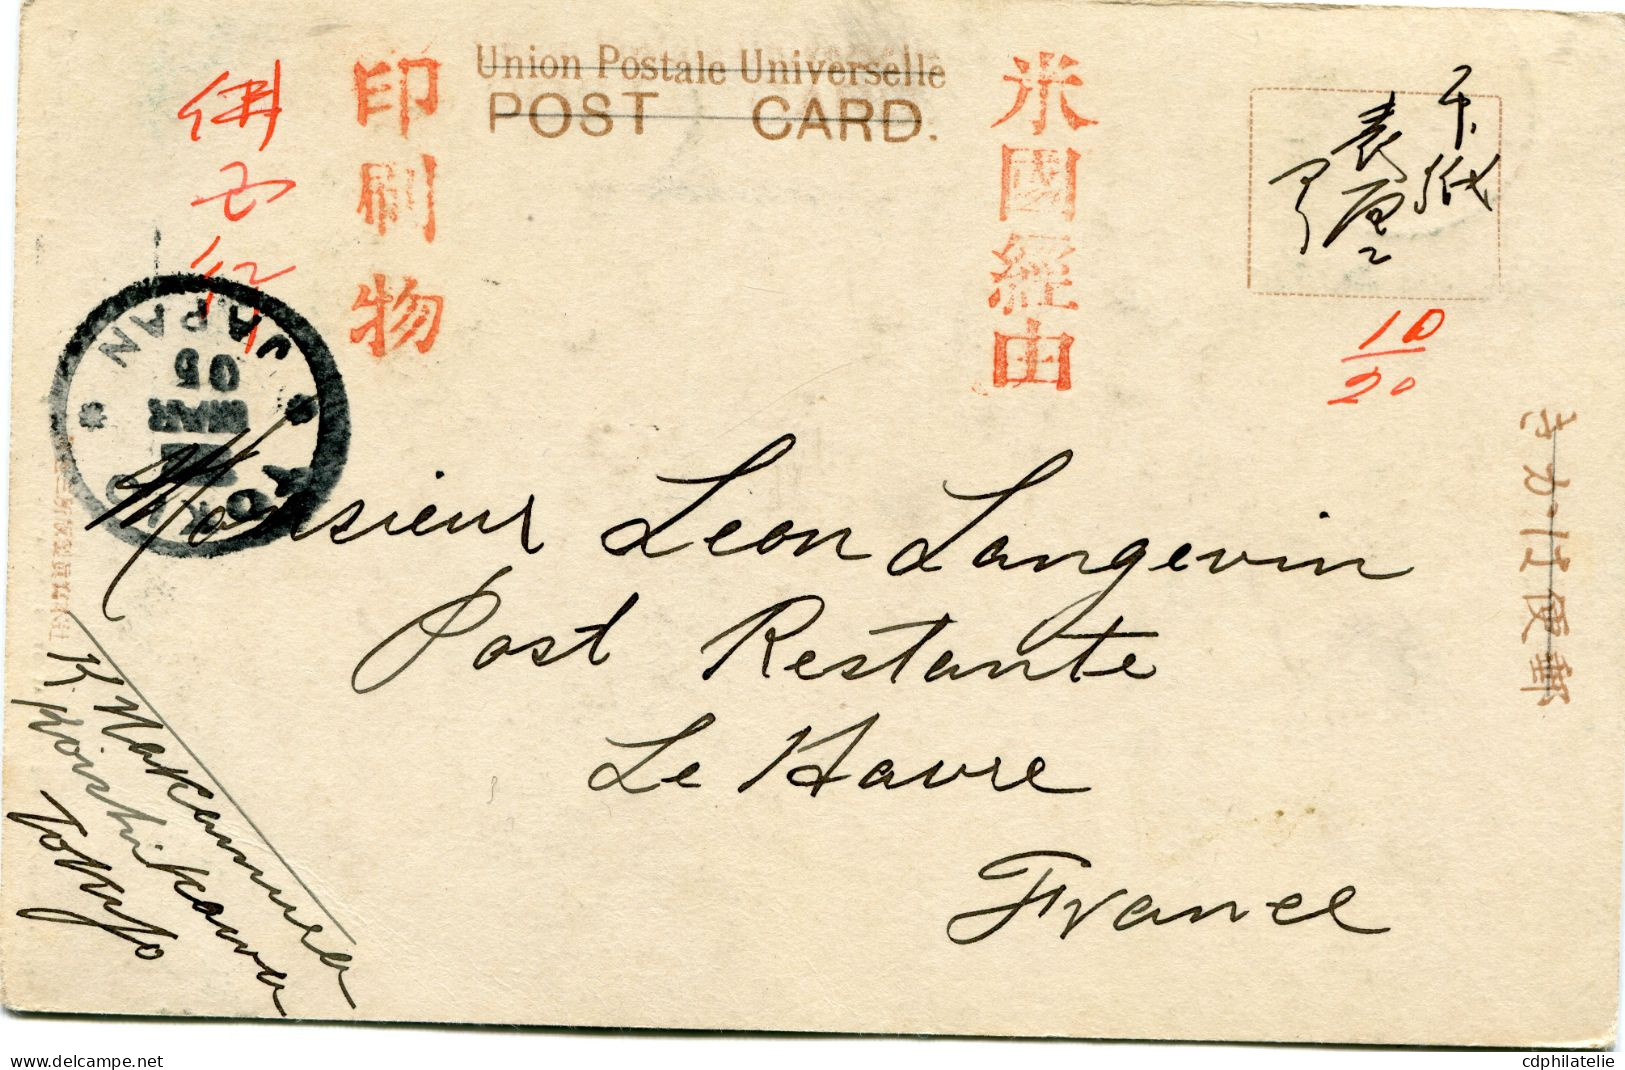 Union Postale Universelle
POST CARD.
米國經由
印刷物
切手ハ
表面ニ
10
20
きがハ便郵
TOKIO
MAR
05
JAPAN
Monsieur Leon Langevin
Post Restante
Le Havre
France
K. Nakamura
Koishikawa
Tokyo
www.delcampe.net
cdphilatelie